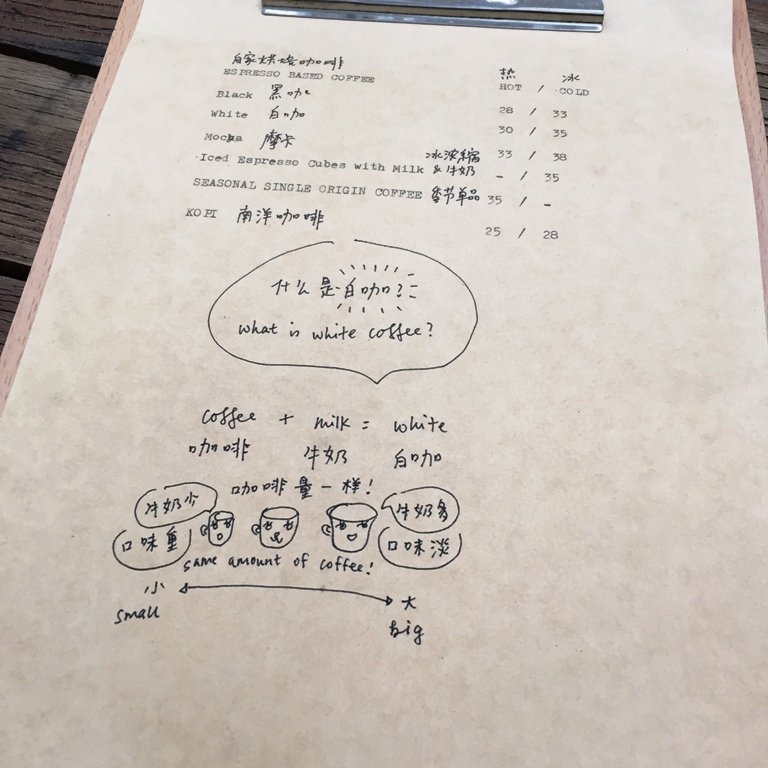 自家烘焙咖啡
ESPRESSO BASED COFFEE 热 冰
HOT / COLD
Black 黑咖 28 / 33
White 白咖 30 / 35
Mocha 摩卡 33 / 38
Iced Espresso Cubes with Milk 冰浓缩&牛奶 - / 35
SEASONAL SINGLE ORIGIN COFFEE 季节单品 35 / -
KOPI 南洋咖啡 25 / 28
什么是白咖?
what is white coffee?
coffee + milk = white
咖啡 牛奶 白咖
咖啡量一样!
牛奶少 牛奶多
口味重 口味淡
same amount of coffee!
小 大
small big